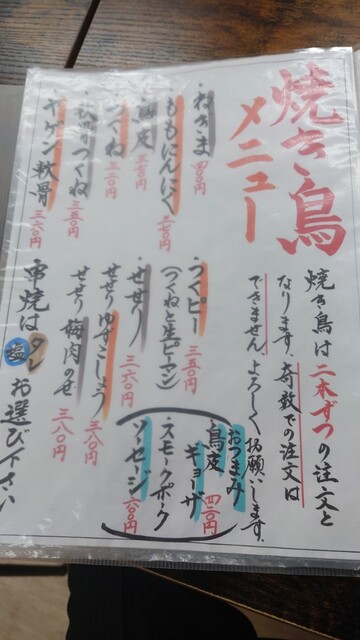 焼き鳥
メニュー
焼き鳥は二本ずつの注文と
なります。奇数での注文は
できません。よろしくお願いします。
・ねぎま
・ももにんにく
・つくね
・軟骨つくね 三五〇円
・ヤゲン軟骨 三六〇円
・つくピー 三五〇円
(つくねと生ピーマン)
・せせり 三六〇円
せせりゆずこしょう 三八〇円
せせり梅肉のせ 三八〇円
おつまみ
鳥皮ギョーザ
・スモークポーク
・ソーセージ
串焼は タレ 塩 お選び下さい